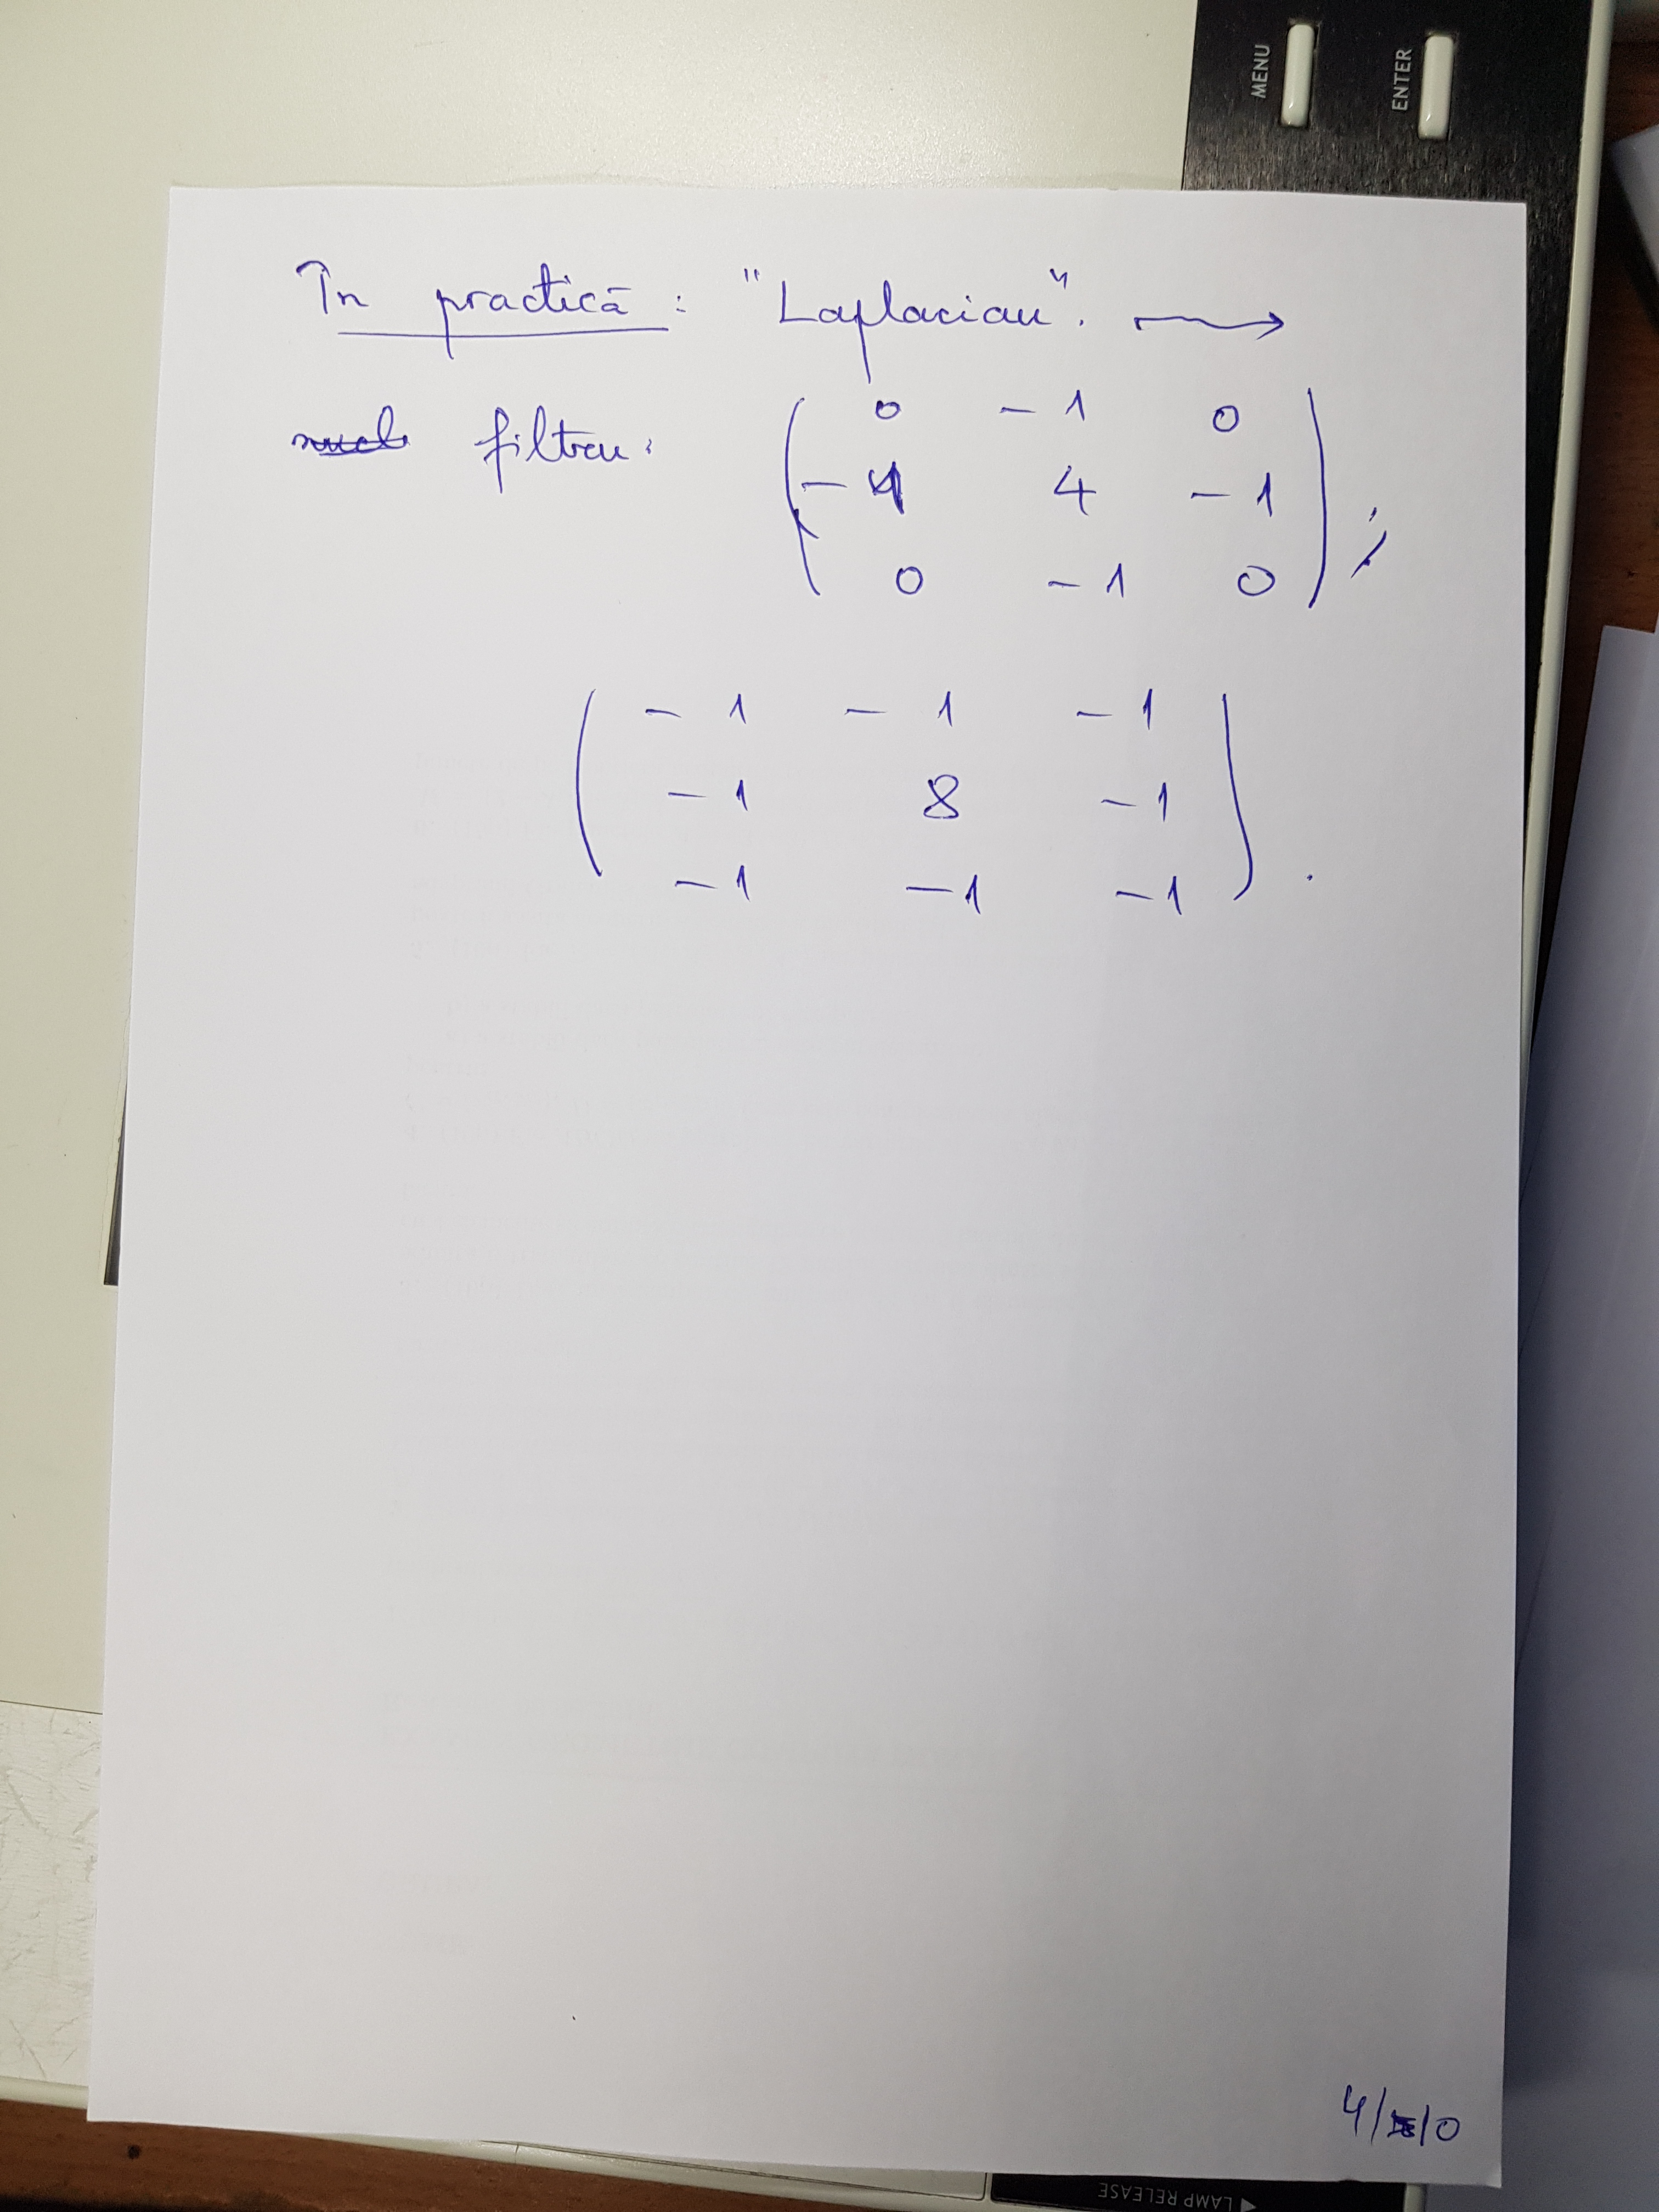 MENU
ENTER
În practică: "Laplacian". →
filtru:
( 0 -1 0 )
( -1 4 -1 ) ;
( 0 -1 0 )
( -1 -1 -1 )
( -1 8 -1 )
( -1 -1 -1 ) .
LAMP RELEASE